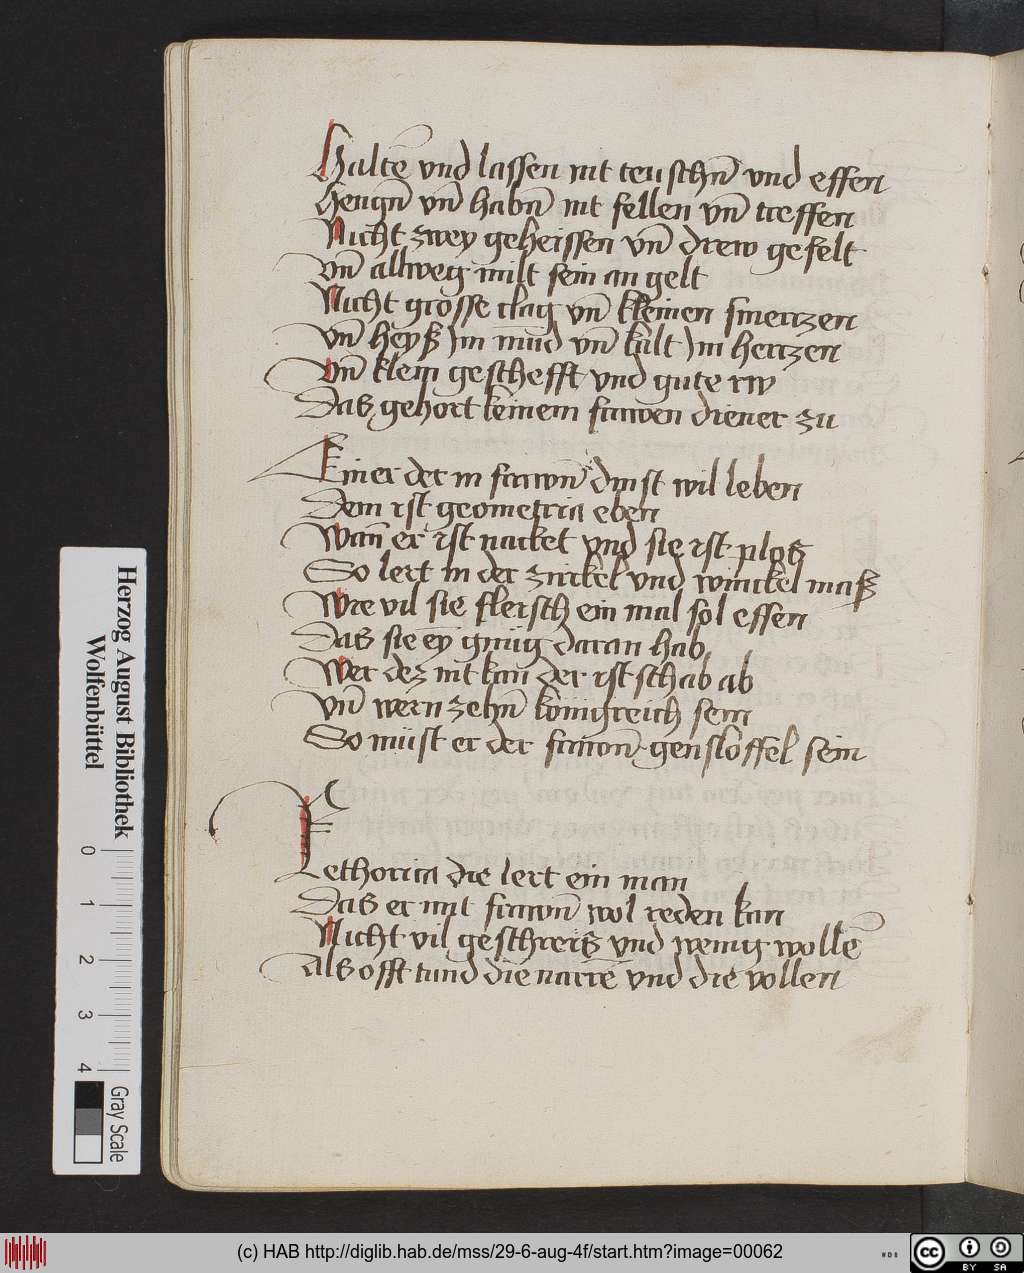 Haltē vnd lassen nit teuschn̄ vnd effen
Hengn̄ vn̄ habn̄ nit fellen vn̄ treffen
Nicht zwey geheissen vn̄ drew gefelt
vn̄ allweg milt sein an gelt
Nicht grosse clag vn̄ kleinen smertzen
vn̄ heyß Jm mūd vn̄ kalt Jm hertzen
Vn̄ klein geschefft vnd gute rw
Das gehort keinem frawen diener zu
Einer der in frawn̄ dinst wil leben
Dem ist geometria eben
Wan̄ er ist nacket vnd sie ist ploß
So lert in der zirckel vnd winckel maß
Wie vil sie fleisch ein mal sol essen
Das sie ey gnüg daran hab
Wer dez nit kan der ist schab ab
Vn̄ wern zehn̄ königreich sein
So müst er der frawn̄ genslöffel sein
Rethorica die lert ein man
Das er mit frawn̄ wol reden kan
Nicht vil geschreiß vnd wenig wollē
Als offt tund die narrē vnd die vollen
Herzog August Bibliothek
Wolfenbüttel
0 1 2 3 4
Gray Scale
(c) HAB http://diglib.hab.de/mss/29-6-aug-4f/start.htm?image=00062
cc BY SA